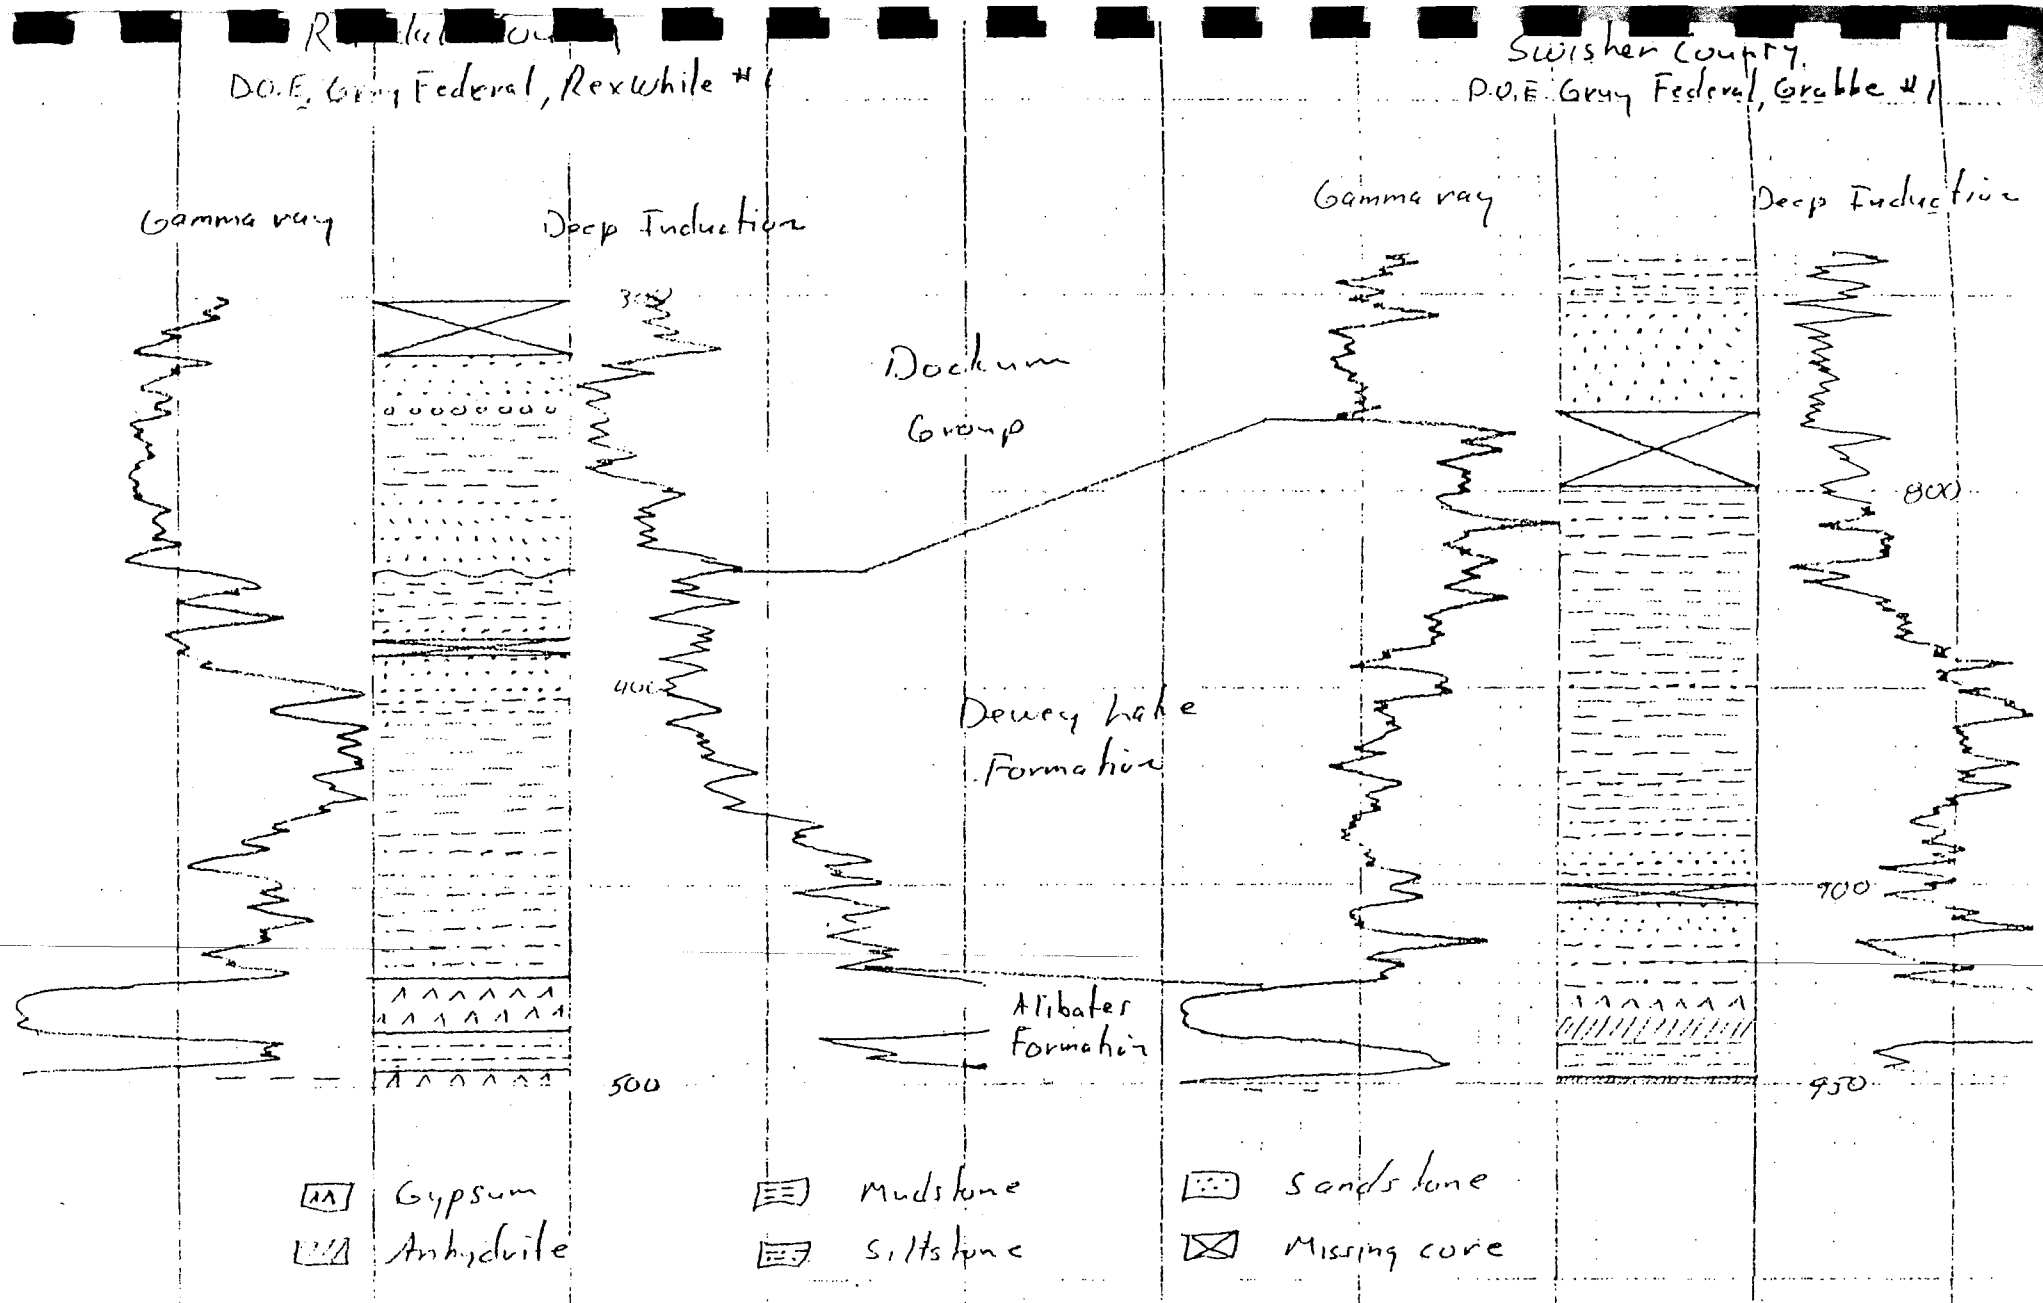 D.O.E. Gruy Federal, Rex While #1
Swisher County.
D.O.E. Gruy Federal, Grabbe #1
Gamma ray
Deep Induction
Gamma ray
Deep Induction
300
Dockum
Group
800
400
Dewey Lake
Formation
900
Alibates
Formation
500
950
Gypsum
Mudstone
Sandstone
Anhydrite
Siltstone
Missing core